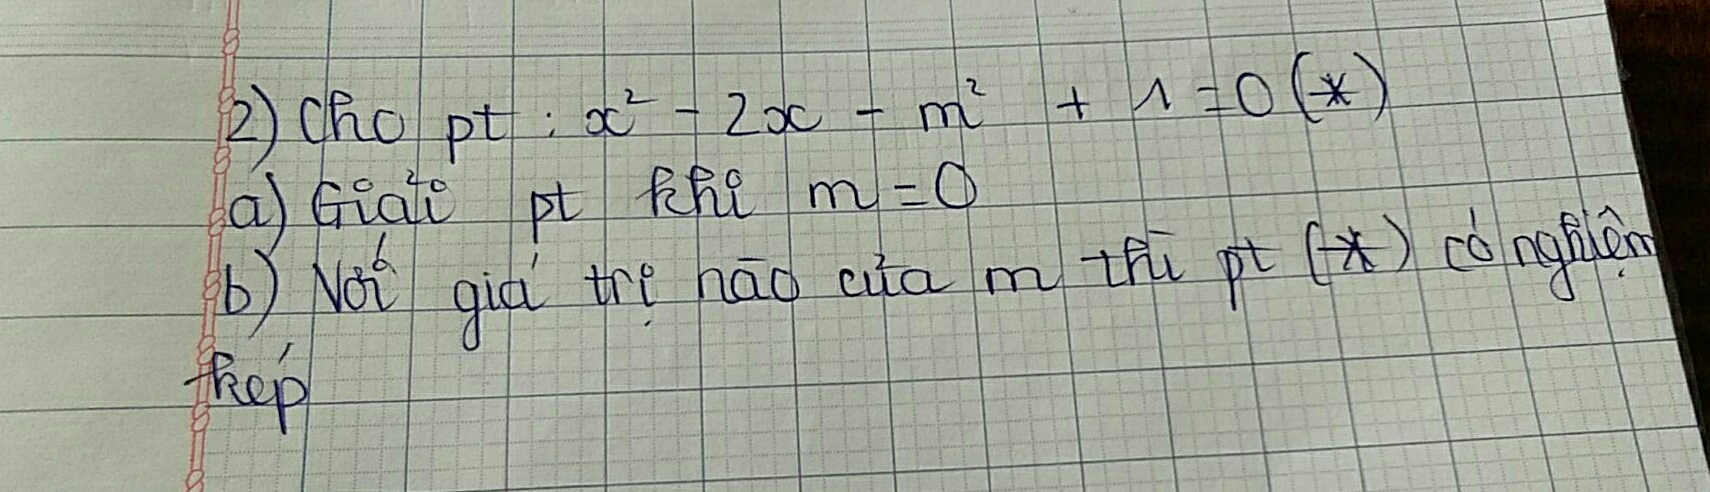 2) Cho pt : x² - 2x - m² + 1 = 0 (*)
a) Giải pt khi m = 0
b) Với giá trị nào của m thì pt (*) có nghiệm
kép